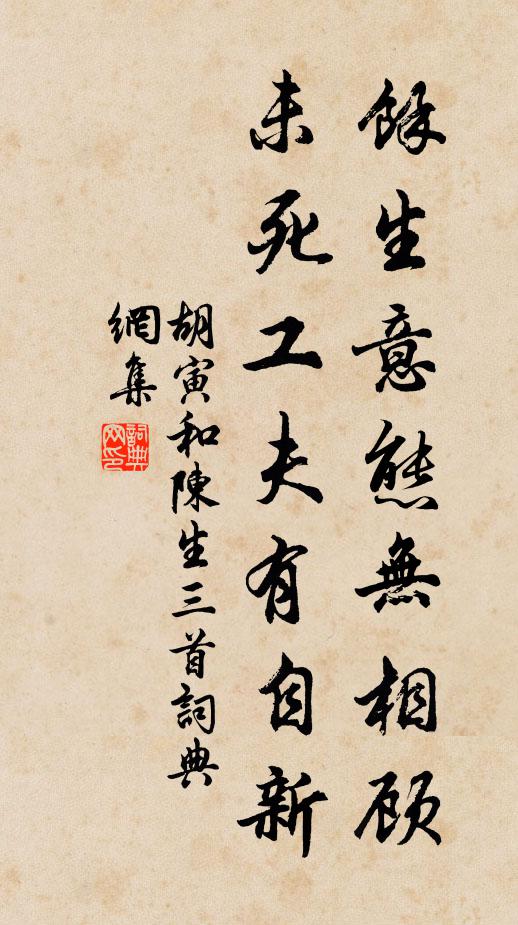 餘生意態無相顾
未死工夫有自新
胡寅和陳生三首詞典
網集
詞典网印